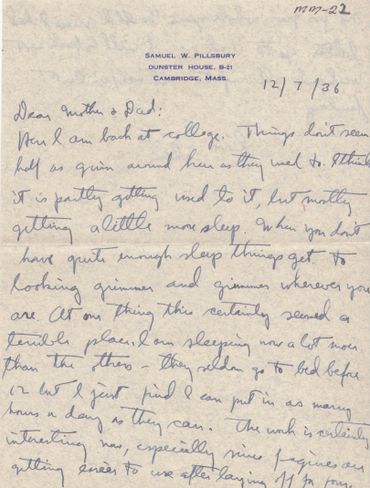 MM-22
SAMUEL W. PILLSBURY
DUNSTER HOUSE, B-21
CAMBRIDGE, MASS.
12/7/36
Dear Mother & Dad:
Here I am back at college. Things don't seem
half as grim around here as they used to. I think
it is partly getting used to it, but mostly
getting a little more sleep. When you don't
have quite enough sleep things get to
looking grimmer and grimmer wherever you
are. At one time this certainly seemed a
terrible place. I am sleeping now a lot more
than the others - they seldom go to bed before
12 but I just find I can put in as many
hours a day as they can. The work is certainly
interesting now, especially since
getting easier to use after laying off for